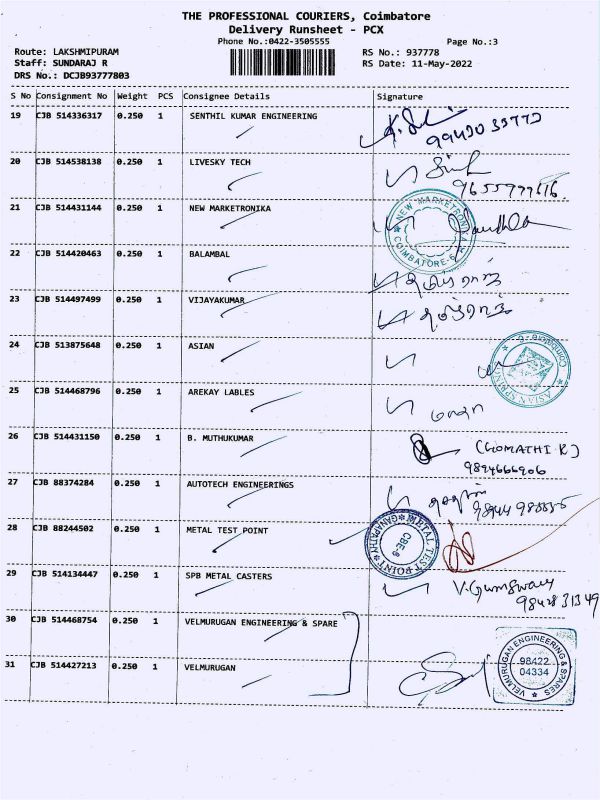 THE PROFESSIONAL COURIERS, Coimbatore
Delivery Runsheet - PCX
Phone No.:0422-3505555
Page No.:3
Route: LAKSHMIPURAM
RS No.: 937778
Staff: SUNDARAJ R
RS Date: 11-May-2022
DRS No.: DCJB93777803
S No Consignment No Weight PCS Consignee Details Signature
19 CJB 514336317 0.250 1 SENTHIL KUMAR ENGINEERING
20 CJB 514538138 0.250 1 LIVESKY TECH
21 CJB 514431144 0.250 1 NEW MARKETRONIKA
NEW MARKETRONIKA
COIMBATORE-6
22 CJB 514420463 0.250 1 BALAMBAL
23 CJB 514497499 0.250 1 VIJAYAKUMAR
24 CJB 513875648 0.250 1 ASIAN
25 CJB 514468796 0.250 1 AREKAY LABLES
26 CJB 514431150 0.250 1 B. MUTHUKUMAR
(GOMATHI R)
9894666906
27 CJB 88374284 0.250 1 AUTOTECH ENGINEERINGS
28 CJB 88244502 0.250 1 METAL TEST POINT
METAL TEST POINT
GANAPATHY
CBE-6
29 CJB 514134447 0.250 1 SPB METAL CASTERS
30 CJB 514468754 0.250 1 VELMURUGAN ENGINEERING & SPARE
31 CJB 514427213 0.250 1 VELMURUGAN
VELMURUGAN ENGINEERING & SPARES
98422
04334